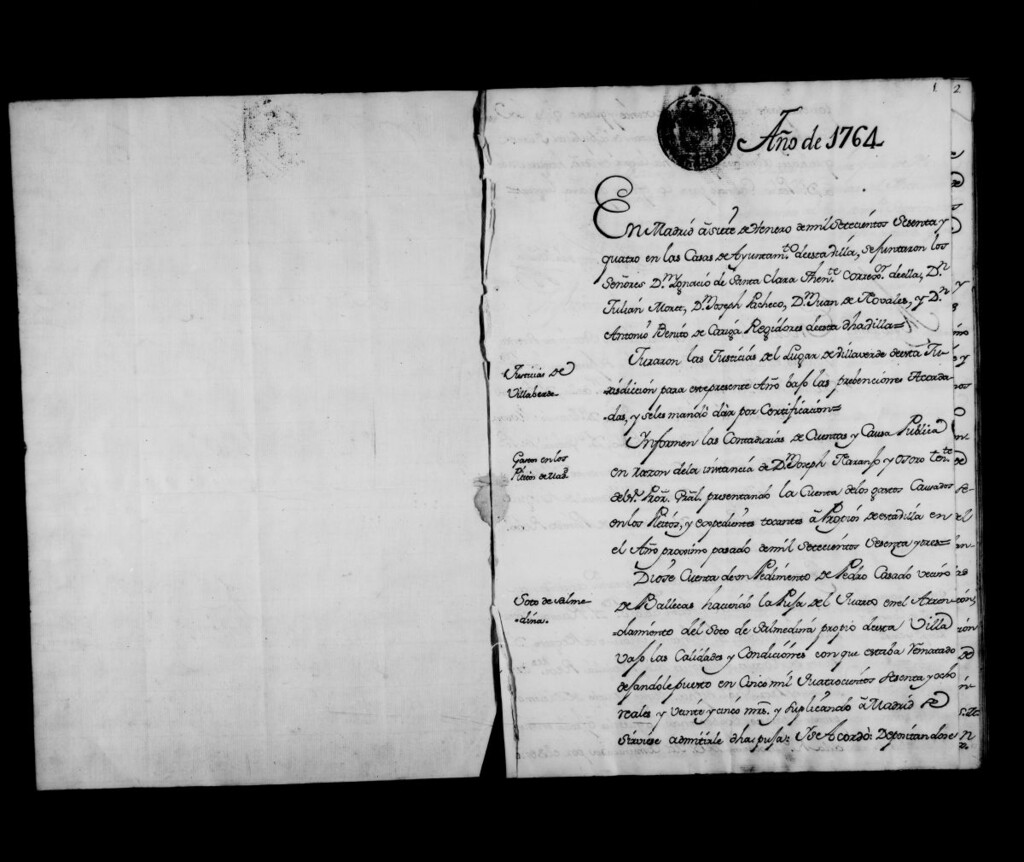 1 2
Año de 1764
En Madrid â siete de Henero de mil Setecientos Sesenta y
quatro en las Casas de Ayuntam.to de esta Villa, se juntaron los
Señores D.n Ygnacio de Santa Clara Then.te Correg.or de ella, D.n
Julián Moret, D.n Joseph Pacheco, D.n Juan de Novales, y D.n
Antonio Benito de Cariga Regidores de esta dha Villa=
Justicias de
Villaberde
Juraron las Justicias del Lugar de Villaverde de esta Ju-
-risdicción para este presente Año bajo las prebenciones Acorda-
-das, y se les mandó dár por Certificación=
Gastos en los
Pleitos de
Informen las Contadurías de Cuentas y Causa Publica
en razon de la instancia de D.n Joseph Naranjo y Osoro ten.te
de Pror. Gral. presentando la Cuenta de los gastos Causados
en los Pleitos, y expedientes tocantes â de esta Villa en
el Año proximo pasado de mil Setecientos Sesenta y tres=
Soto de Salme-
-dina.
Diose Cuenta de un Pedimento de Pedro Casado vecino
de Ballecas haciendo la Puja del Quarto en el Arren-
-damiento del Soto de Salmedina propio de esta Villa
vajo las Calidades y Condiciones con que estaba Rematado
dejandole puesto en Cinco mil Quatrocientos Sesenta y ocho
reales y veinte y cinco mrs. y Suplicando â Madrid se
sirviese admitirle dha puja; Y se Acordó: Depositandose